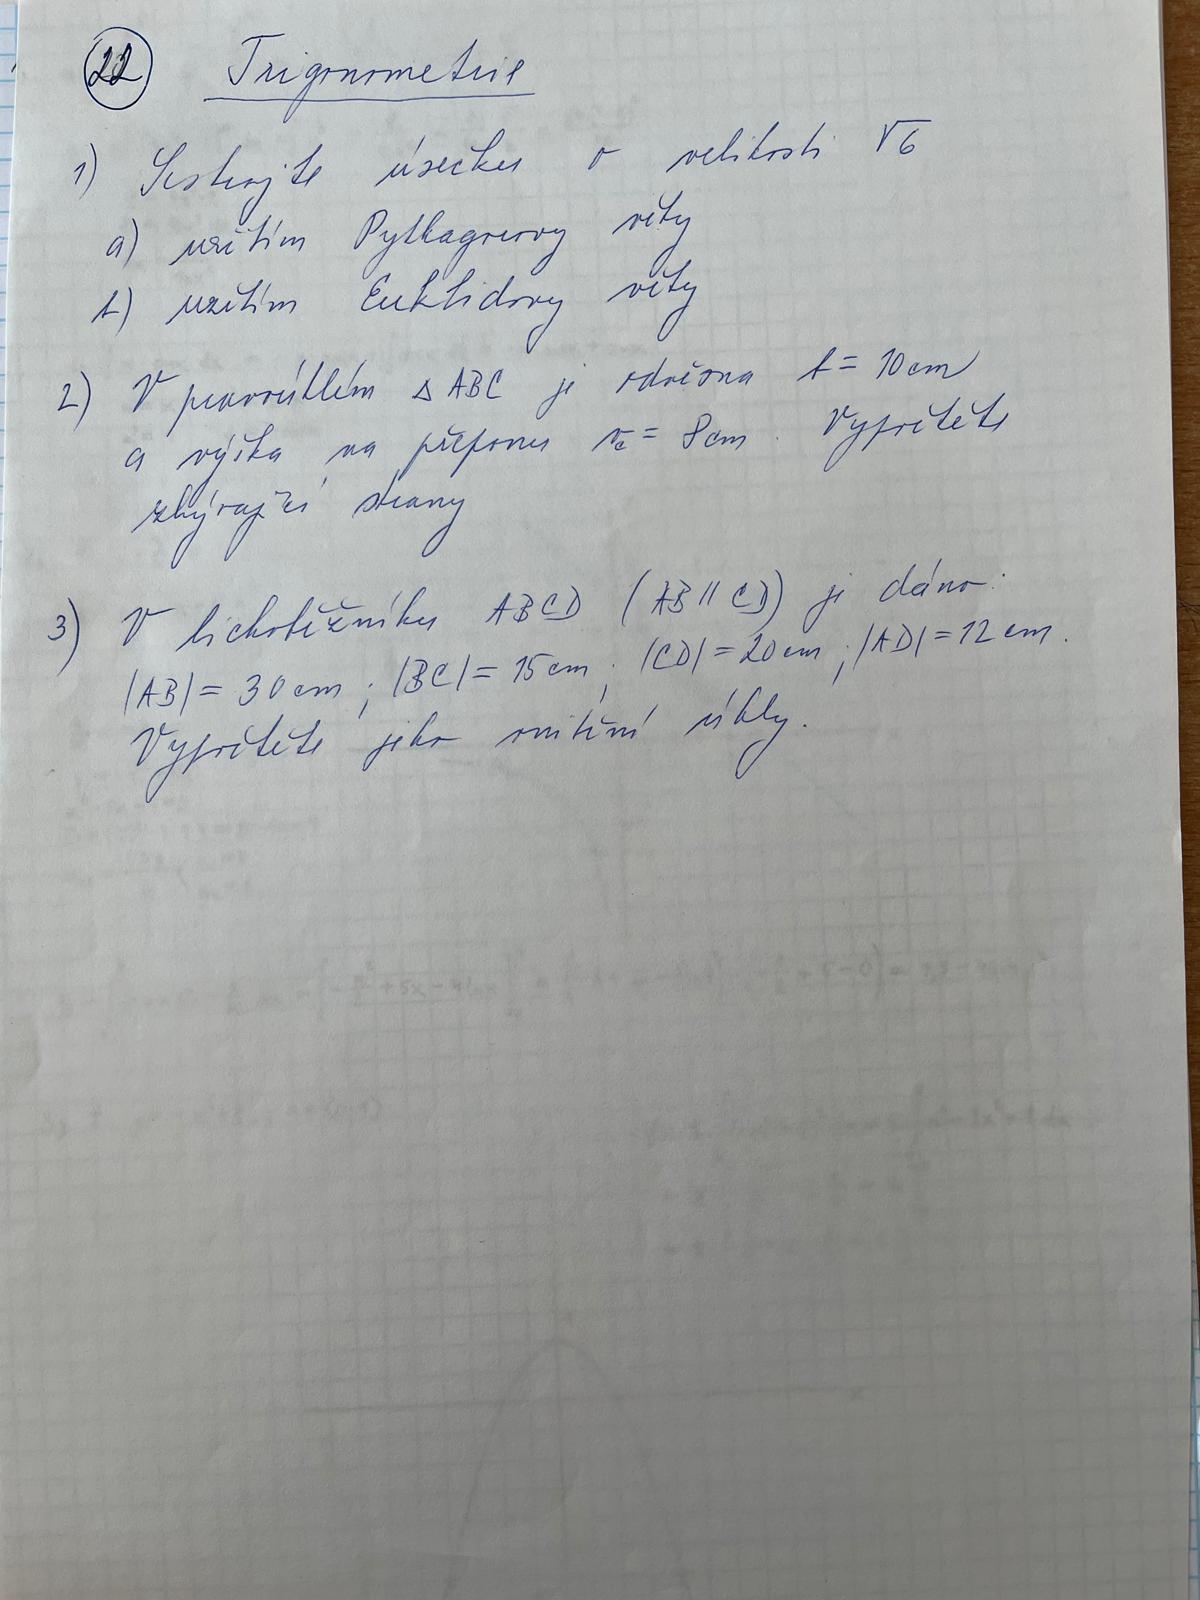 22 Trigonometrie
1) Sestrojte úsečku o velikosti √6
a) užitím Pythagorovy věty
b) užitím Euklidovy věty
2) V pravoúhlém △ ABC je odvěsna b = 10 cm
a výška na přeponu vc = 8 cm. Vypočtěte
zbývající strany
3) V lichoběžníku ABCD (AB || CD) je dáno:
|AB| = 30 cm ; |BC| = 15 cm ; |CD| = 20 cm ; |AD| = 12 cm.
Vypočtěte jeho vnitřní úhly.